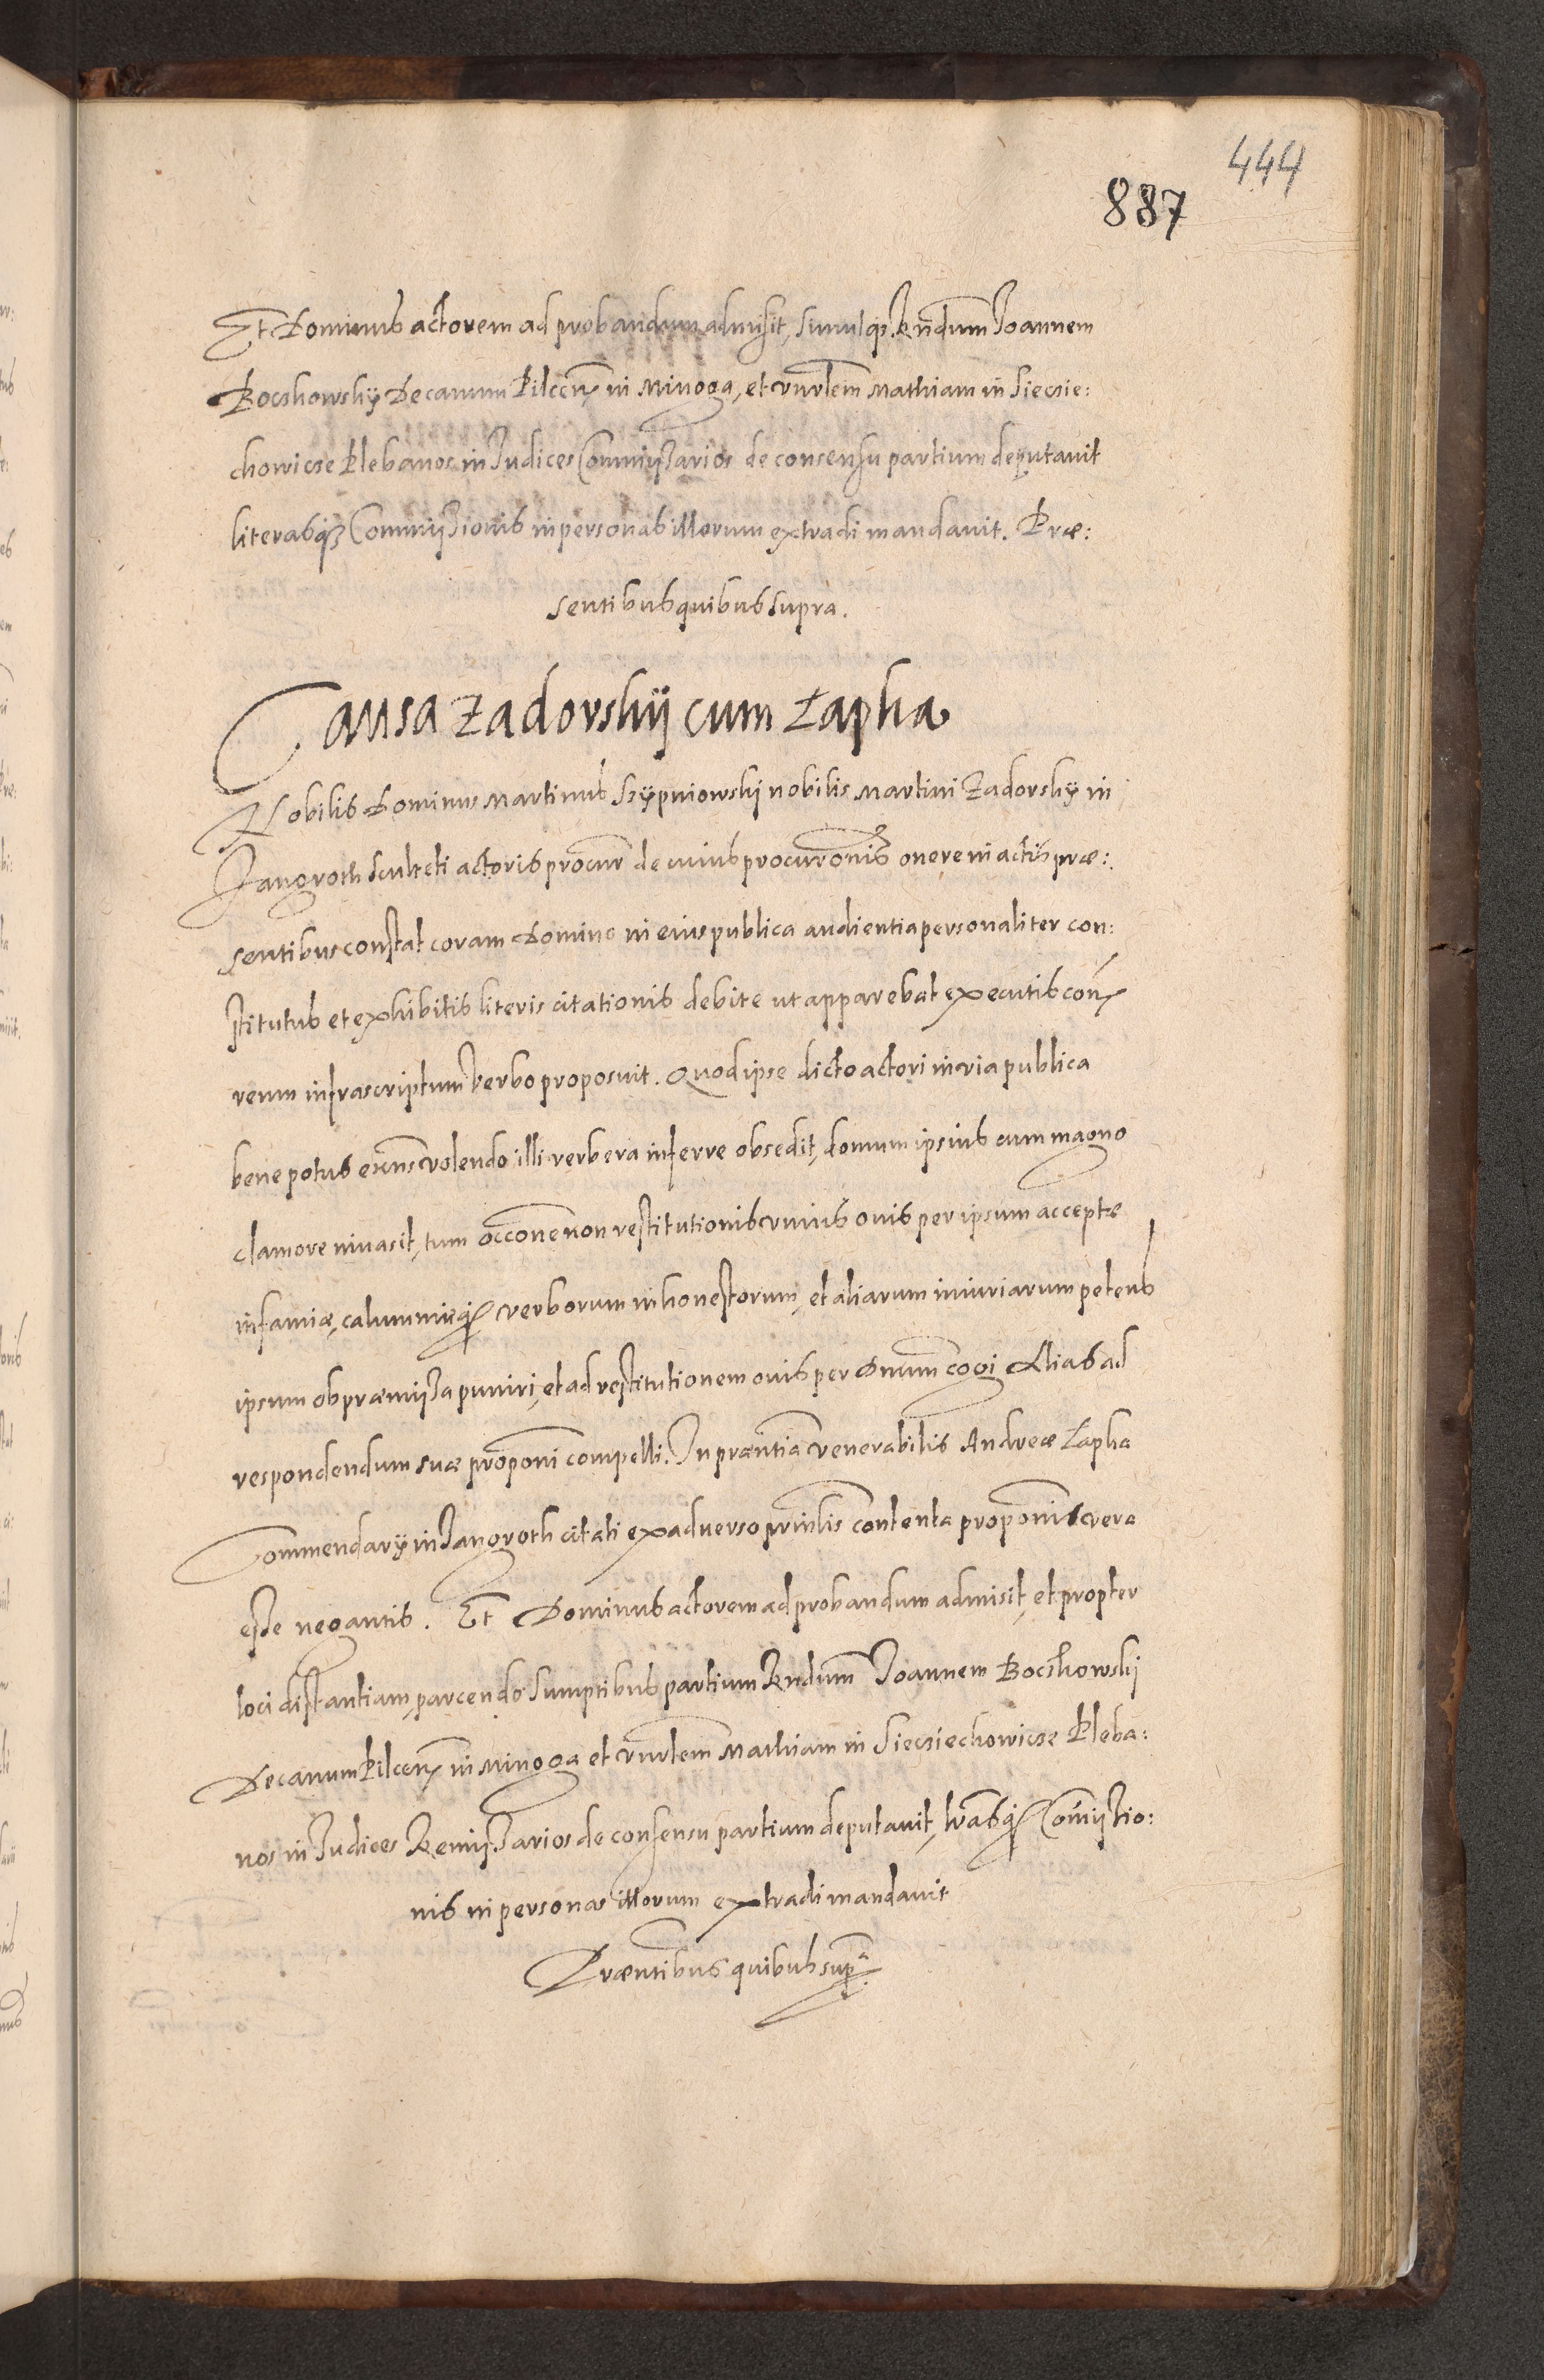 444
887
Et Dominus actorem ad probandum admisit, simulq3 Rndum Joannem
Boczkowsky Decanum Pilcen in Minoga, et vnrlem Mathiam in Siecie:
chowicze Plebanos in Judices Commissarios de consensu partium deputauit
literasq3 Commissionis in personas illorum extradi mandauit. Præ:
sentibus quibus supra.
Causa Zadorskÿ cum Łapka
Nobilis Dominus Martinus Szÿpniowskj nobilis Martini Zadorsky in
Jangroth Sculteti actoris procur de cuius procuronis onere in actis præ:
sentibus constat coram Domino in eius publica audientia personaliter con:
stitutus et exhibitis literis citationis debite ut apparebat executis con
reum infrascriptum verbo proposuit. Quod ipse dicto actori in via publica
bene potus exns volendo illi verbera inferre obsedit, domum ipsius cum magno
clamore inuasit, tum occone non restitutionis vnius ouis per ipsum acceptæ
infamiæ, calumniæq3 verborum inhonestorum, et aliarum iniuriarum petens
ipsum ob præmissa puniri, et ad restitutionem ouis per Dnum cogi Alias ad
respondendum suæ proponi compelli. In præntia venerabilis Andreæ Łapka
Commendarÿ in Jangroth citati ex aduerso prinlis contenta proponis vera
esse negantis. Et Dominus actorem ad probandum admisit, et propter
loci distantiam, parcendo sumptibus partium Rndum Joannem Boczkowskj
Decanum Pilcen in Minoga et vnrlem Mathiam in Siecziechowicze Pleba:
nos in Judices Remissarios de consensu partium deputauit, lrasq3 Comissio:
nis in personas illorum extradi mandauit
Præntibus quibus supra